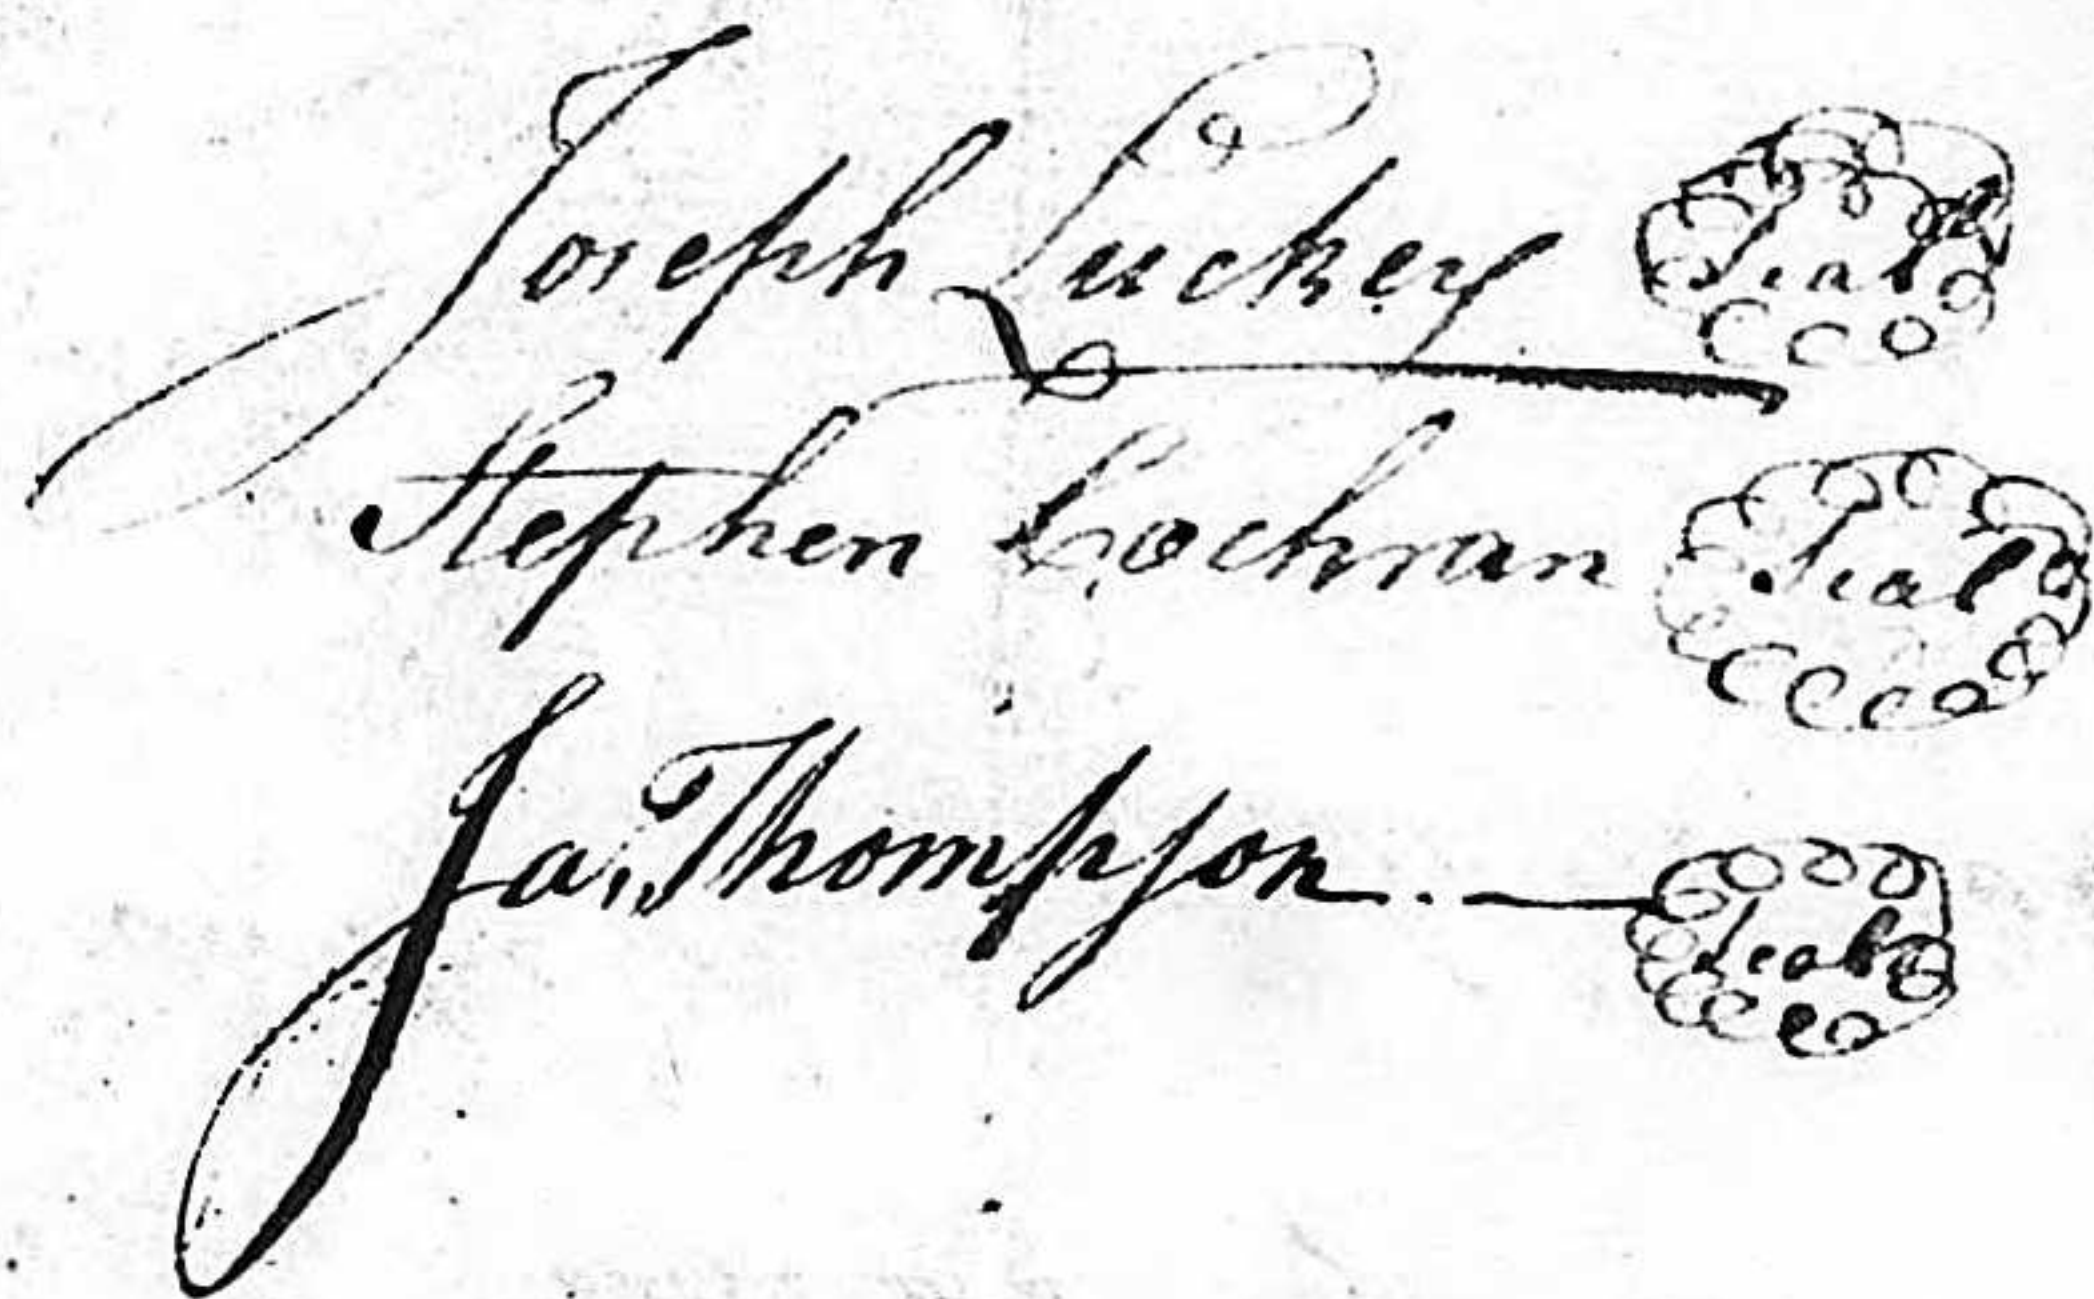 Joseph Luckey Seal
Stephen Cochran Seal
Ja. Thompson Seal